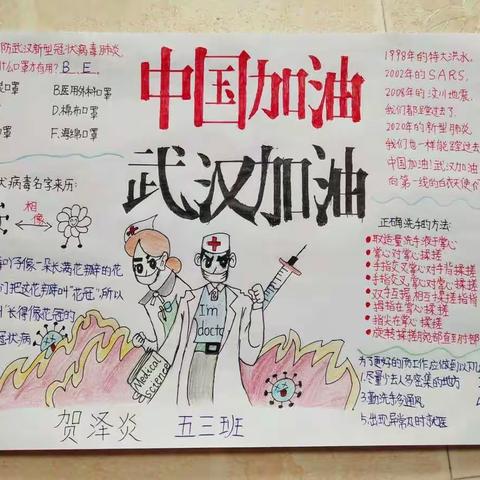 防武汉新型冠状病毒肺炎,
什么口罩才有用? B、E、
口罩
B.医用外科口罩
D.棉布口罩
F.海绵口罩
中国加油
武汉加油
1998年的特大洪水,
2002年的SARS,
2008年的汶川地震,
我们都蹚过去了.
2020年的新型肺炎
我们也一样能蹚过去
中国加油!武汉加油
向第一线的白衣天使们
状病毒名字来历:
相
像
仔像一朵长满花瓣的花
们把这花瓣叫"花冠",所以
叫"长得像花冠的
冠状病
正确洗手的方法:
取适量洗手液于掌心
掌心对掌心揉搓
手指交叉掌心对手背揉搓
手指交叉,掌心对掌心揉搓
双手互握,相互揉搓指背
拇指在掌心揉搓
指尖在掌心揉搓
旋转揉搓腕部直至肘部
I'm
docto
Medical
science
为了更好的防工作应做到以下几
1.尽量少去人多密集的地方
3.勤洗手多通风
5.出现异常及时就医
贺泽炎 五三班